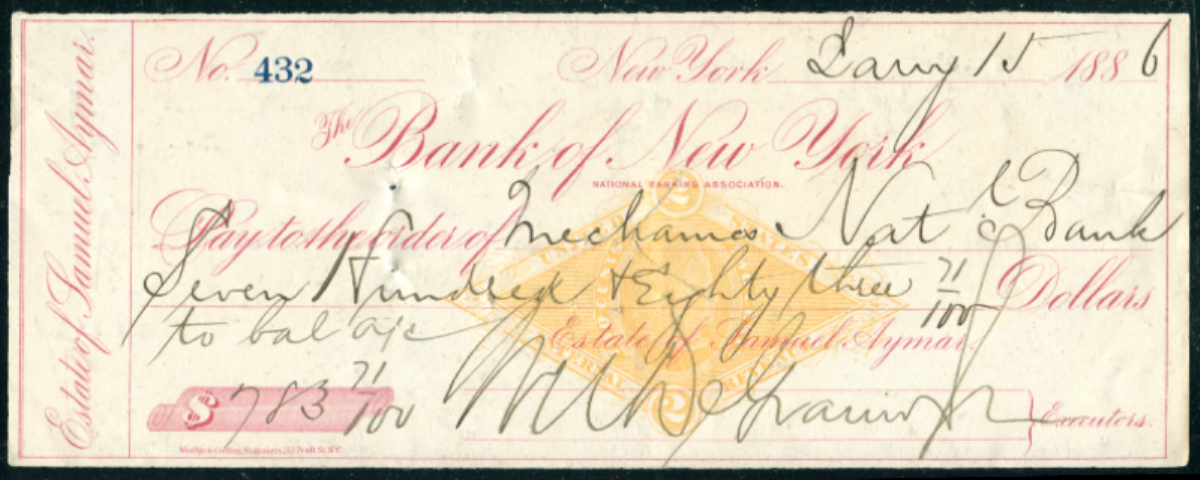 Estate of Samuel Aymar.
No. 432 New York Jany 15 1886
The Bank of New York
NATIONAL BANKING ASSOCIATION.
Pay to the order of Mechanics Nat Bank
Seven Hundred & Eighty three 71/100 Dollars
to bal a/c
Estate of Samuel Aymar.
$ 783 71/100
Executors.
2
UNITED STATES
INTERNAL REVENUE
2